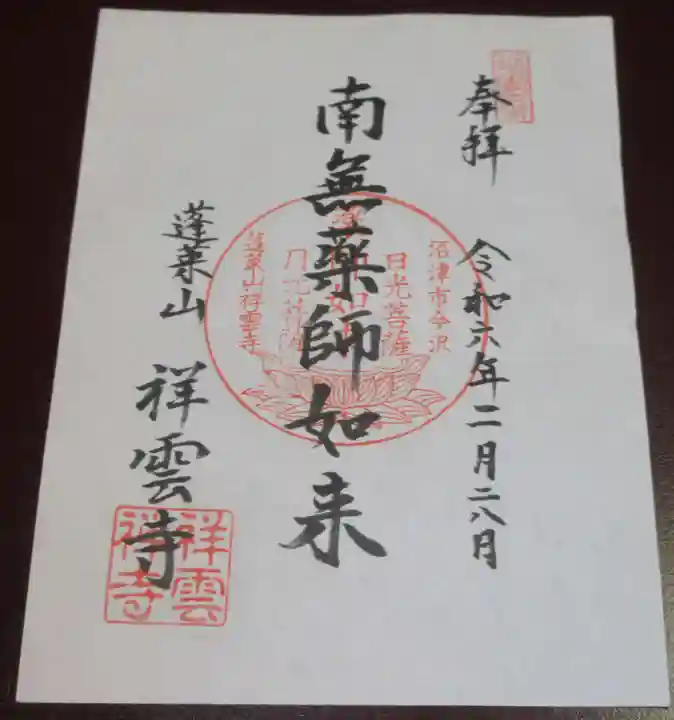 奉拝
令和六年二月二八月
南無薬師如来
沼津市今沢
日光菩薩
蓬莱山祥雲寺
蓬莱山
祥雲寺
祥雲
禅寺